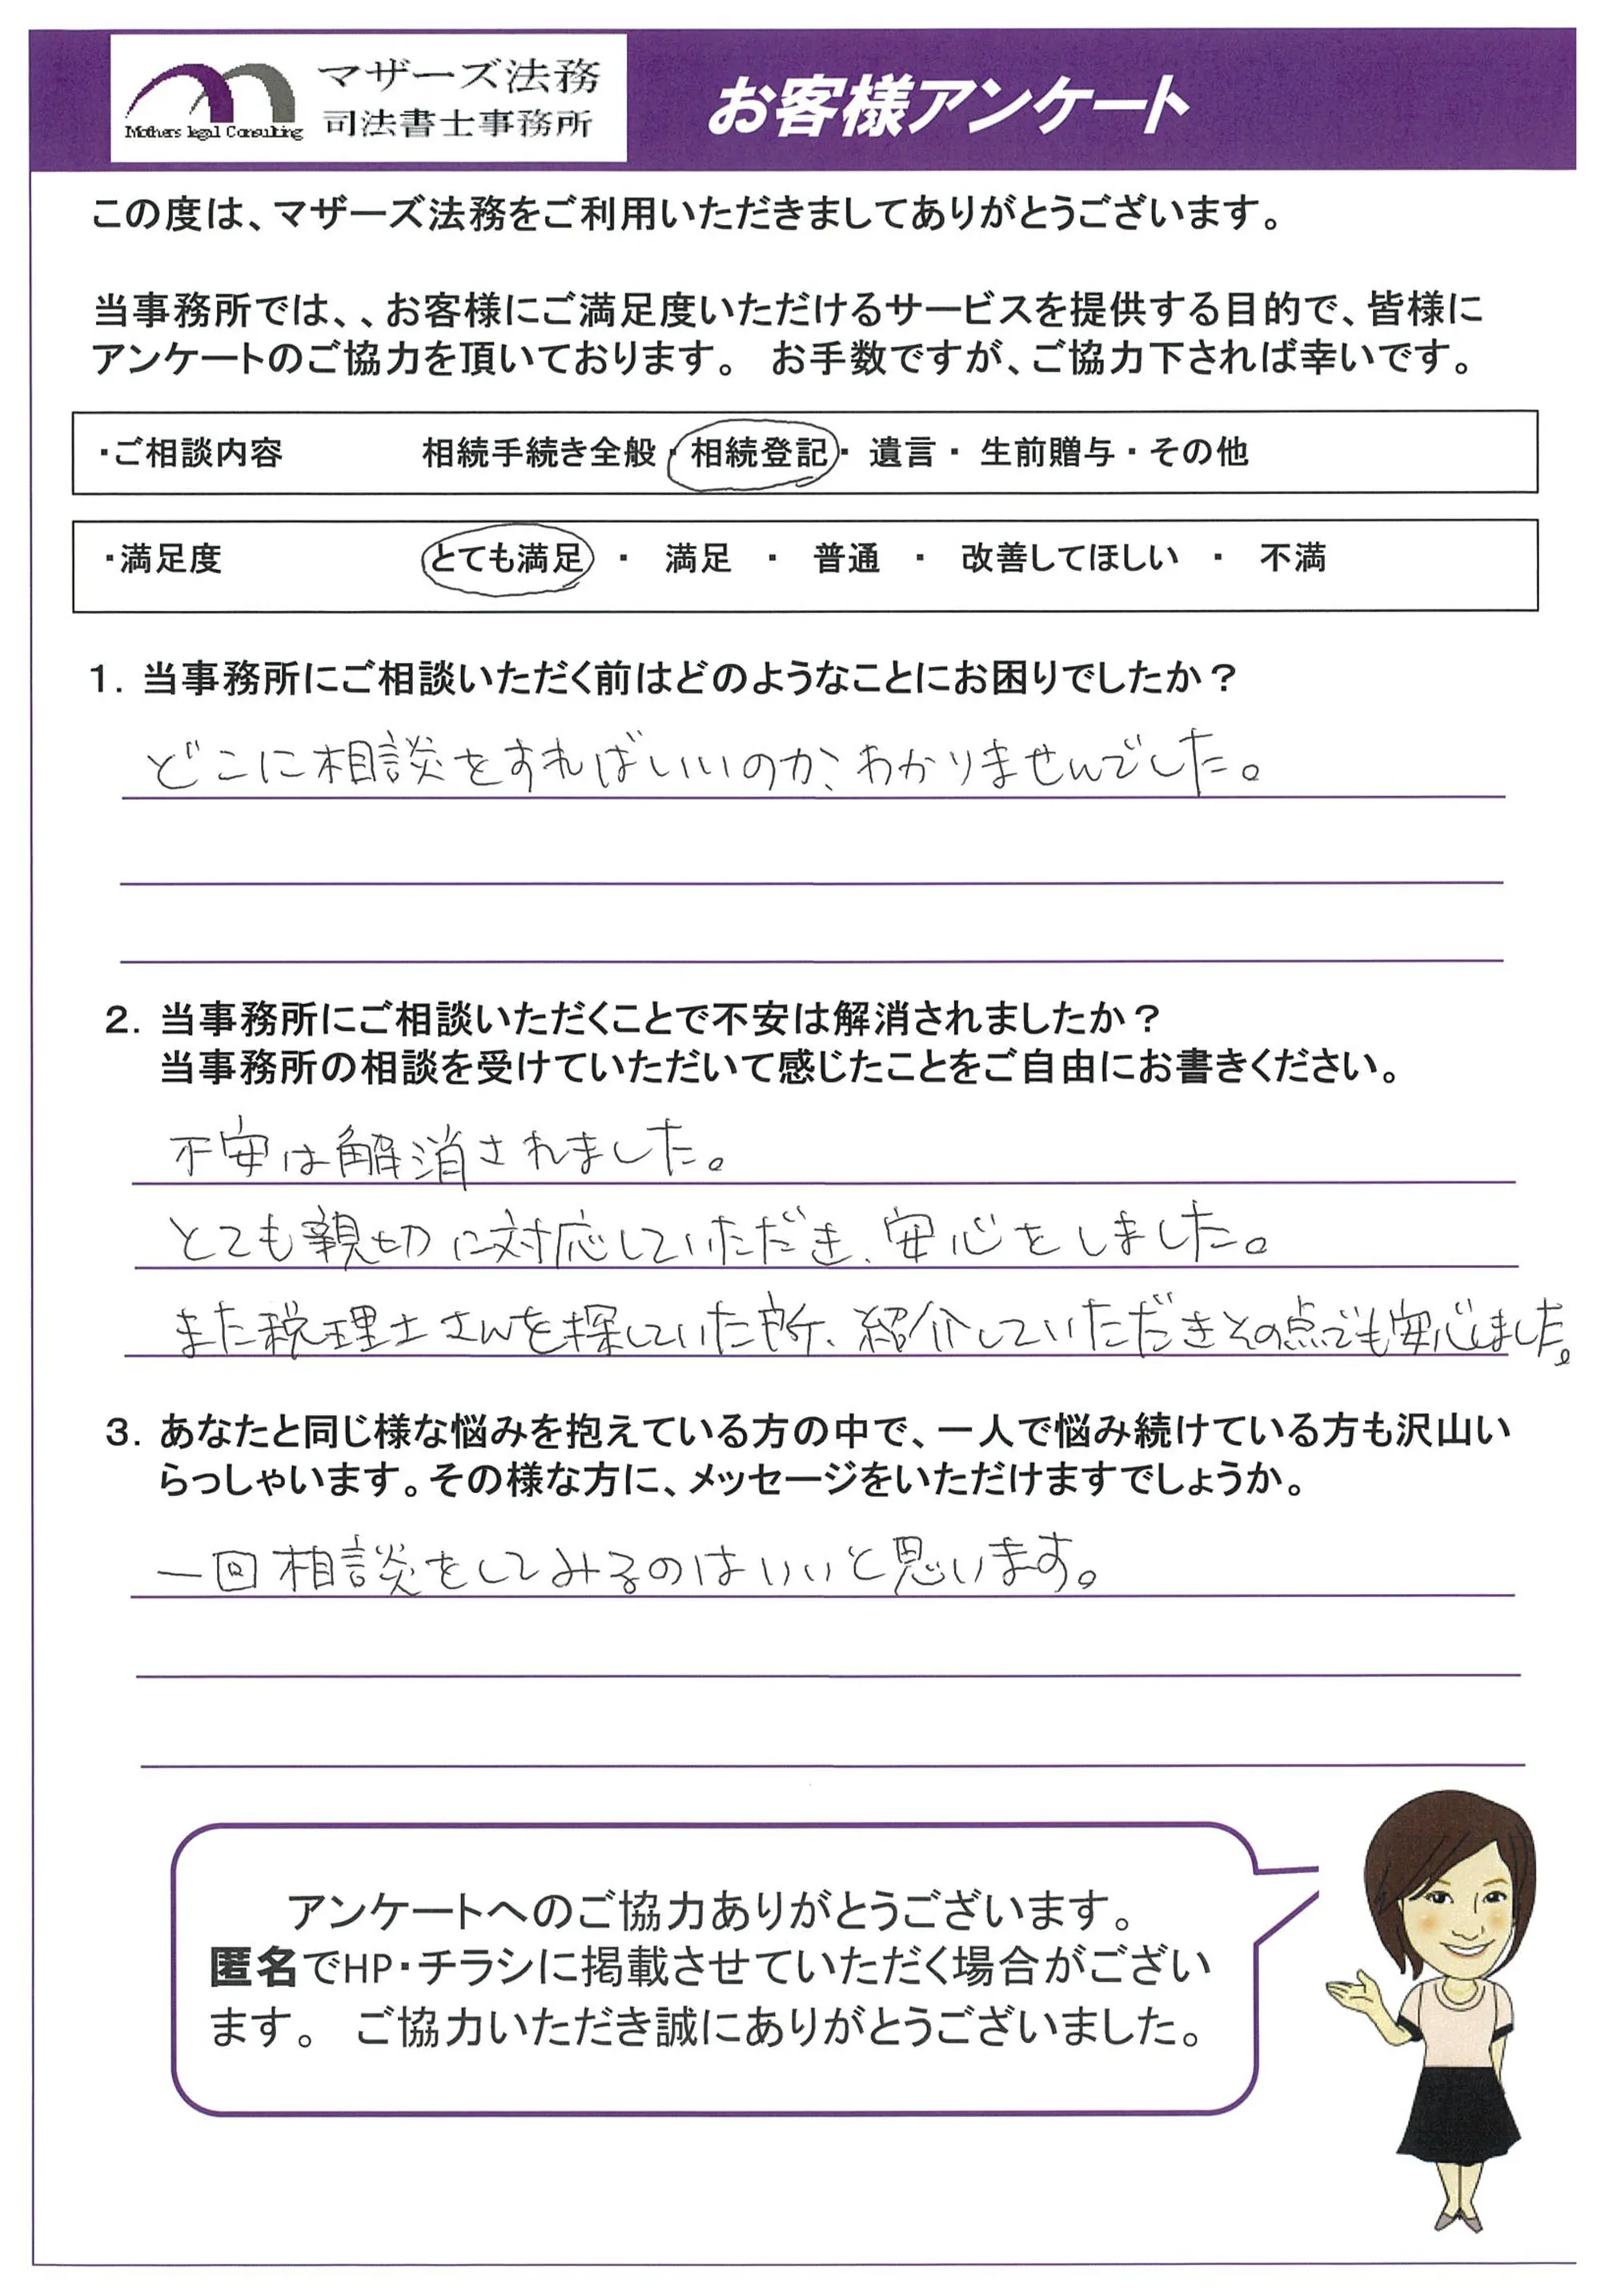 マザーズ法務
Mothers legal Consulting
司法書士事務所
お客様アンケート
この度は、マザーズ法務をご利用いただきましてありがとうございます。
当事務所では、、お客様にご満足度いただけるサービスを提供する目的で、皆様に
アンケートのご協力を頂いております。　お手数ですが、ご協力下されば幸いです。
・ご相談内容　相続手続き全般・相続登記・ 遺言・ 生前贈与・その他
・満足度　とても満足 ・ 満足 ・ 普通 ・ 改善してほしい ・ 不満
1. 当事務所にご相談いただく前はどのようなことにお困りでしたか？
どこに相談をすればいいのか、わかりませんでした。
2. 当事務所にご相談いただくことで不安は解消されましたか？
当事務所の相談を受けていただいて感じたことをご自由にお書きください。
不安は解消されました。
とても親切に対応していただき、安心をしました。
また税理士さんを探していた所、紹介していただきその点でも安心しました。
3. あなたと同じ様な悩みを抱えている方の中で、一人で悩み続けている方も沢山い
らっしゃいます。その様な方に、メッセージをいただけますでしょうか。
一回相談をしてみるのはいいと思います。
アンケートへのご協力ありがとうございます。
匿名でHP・チラシに掲載させていただく場合がござい
ます。　ご協力いただき誠にありがとうございました。